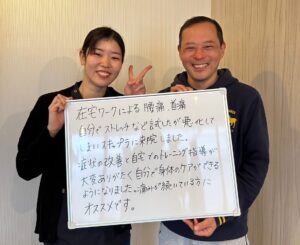 在宅ワークによる 腰痛 首痛
自分でストレッチなど試したが悪化して
しまいスキップラに来院しました。
症状の改善と自宅でのトレーニング指導が
大変ありがたく自分で身体のケアができる
ようになりました。痛みが続いている方に
オススメです。